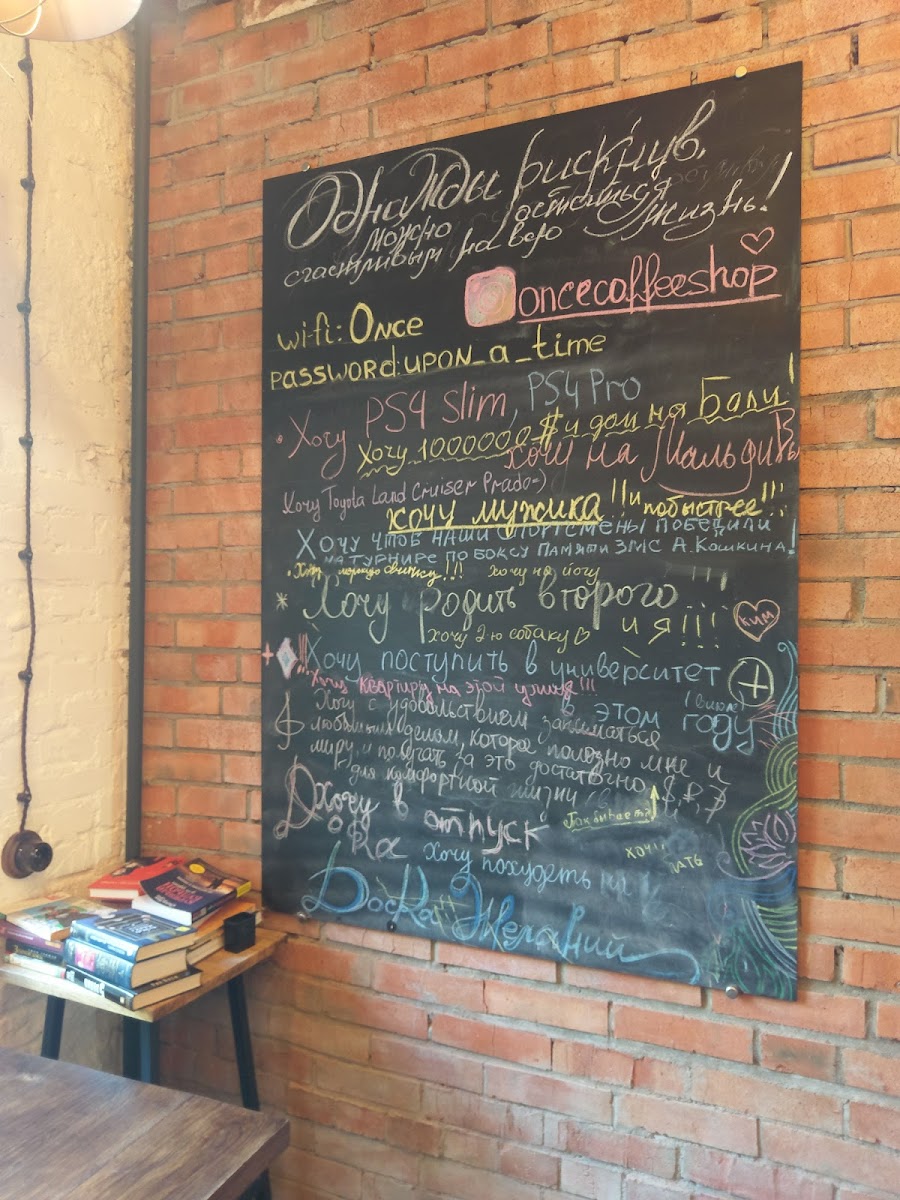 Однажды рискнув,
можно остаться
счастливым на всю жизнь!
oncecoffeeshop
wi-fi: Once
password: upon_a_time
Хочу PS4 Slim, PS4 Pro
Хочу 1000000 $ и дом на Бали!
хочу на Мальдивы
Хочу Toyota Land Cruiser Prado =)
хочу мужика!! и побыстрее!!!
Хочу чтоб наши спортсмены победили
на турнире по боксу памяти ЗМС А. Кошкина!
хочу на йогу
Хочу родить второго!!!
и я!!!
Ким
хочу 2-ю собаку
Хочу поступить в университет
в этом году
Хочу квартиру на этой улице!!!
Хочу с удовольствием заниматься
любимым делом, которое полезно мне и
миру, и получать за это достаточно $, ₽, €
для комфортной жизни
Так бывает?
Хочу в отпуск
Хочу похудеть на
Доска Желаний